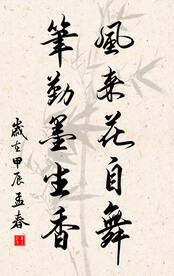 風来花自舞
筆勤墨生香
歲在甲辰孟春